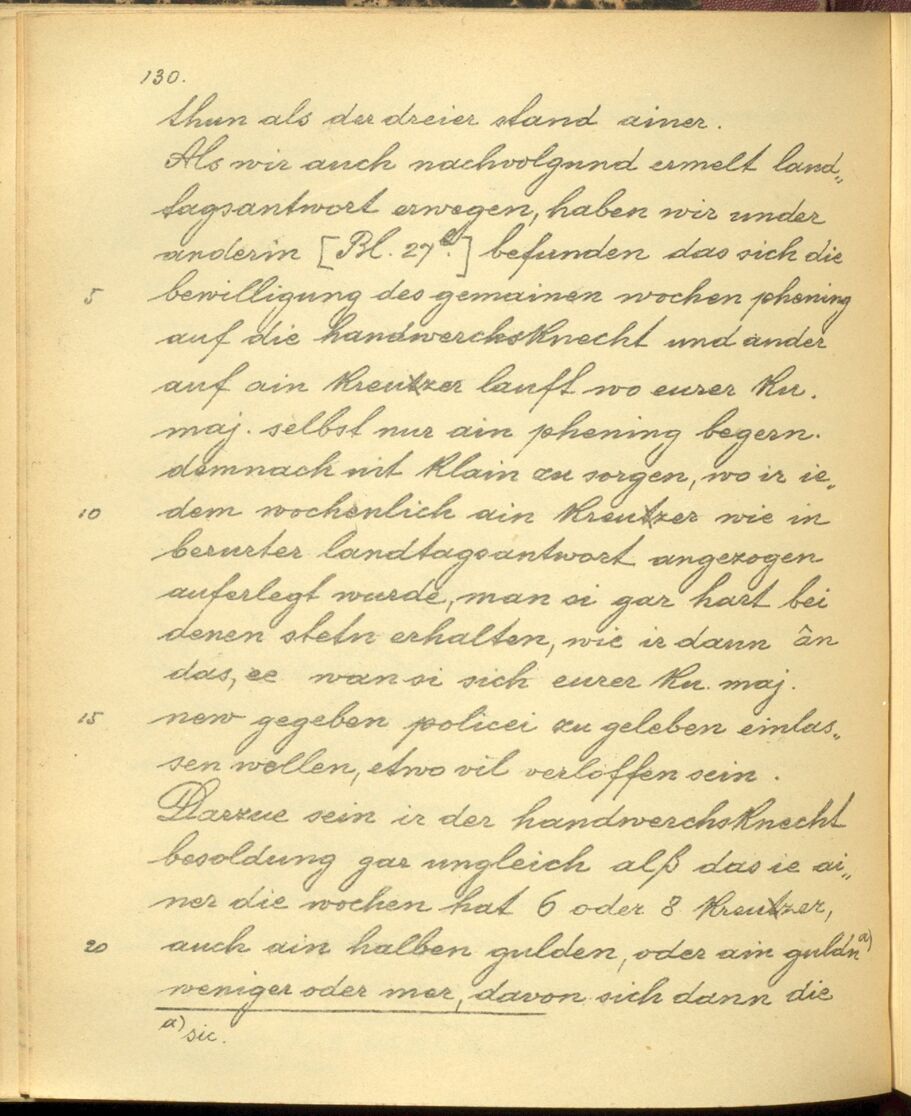 130.
thun als der dreier stand ainer.
Als wir auch nachvolgund ermelt land„
tagsantwort erwegen, haben wir under
anderin [Bl. 27b.] befunden das sich die
5 bewilligung des gemainen wochen phening
auf die handwerchsknecht und ander
auf ain kreutzer lauft wo eurer ku.
maj. selbst nur ain phening begern.
demnach nit klain zu sorgen, wo ir ie„
10 dem wochenlich ain kreutzer wie in
berurter landtagsantwort angezogen
auferlegt wurde, man si gar hart bei
denen stetn erhalten, wie ir dann ân
das, ee wan si sich eurer ku. maj.
15 new gegeben policei zu geleben einlas„
sen wellen, etwo vil verloffen sein.
Darzue sein ir der handwerchsknecht
besoldung gar ungleich alß das ie ai„
ner die wochen hat 6 oder 8 kreutzer,
20 auch ain halben gulden, oder ain guldn a)
weniger oder mer, davon sich dann die
a) sic.